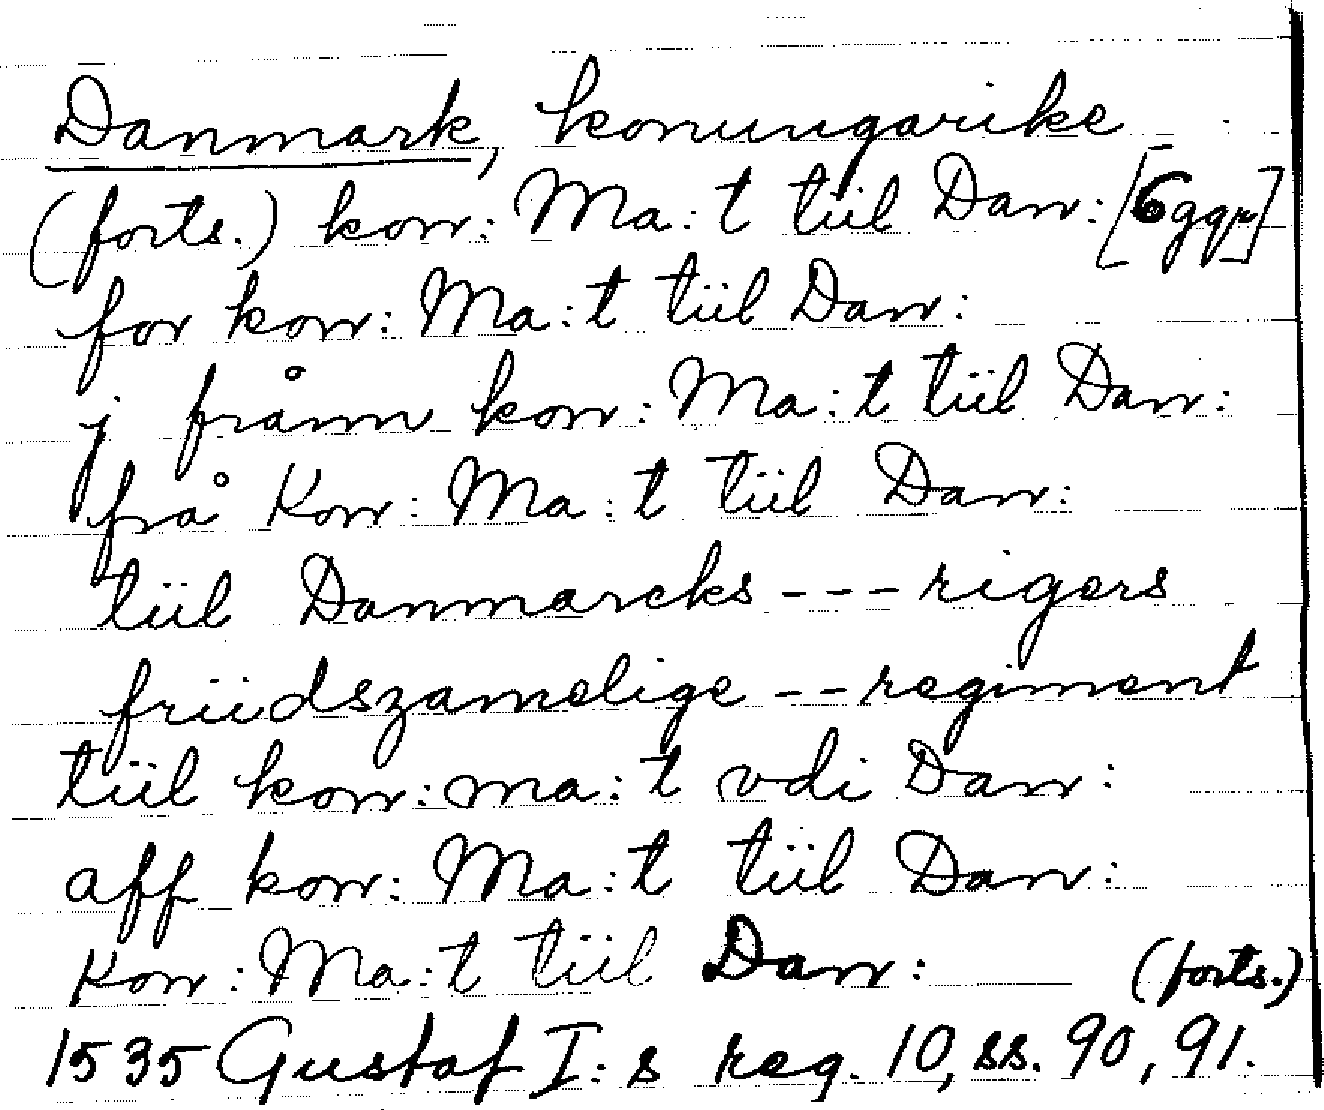 Danmark, konungarike
(forts.) konr: Ma:t tiil Danr: [6 ggr]
for konr: Ma:t tiil Danr:
j frånn konr: Ma:t tiil Danr:
frå Konr: Ma:t tiil Danr:
tiil Danmarcks --- rigers
friidszamelige -- regiment
tiil konr: ma:t vdi Danr:
aff konr: Ma:t tiil Danr:
Konr: Ma:t tiil Danr: (forts.)
1535 Gustaf I:s reg. 10, ss. 90, 91.